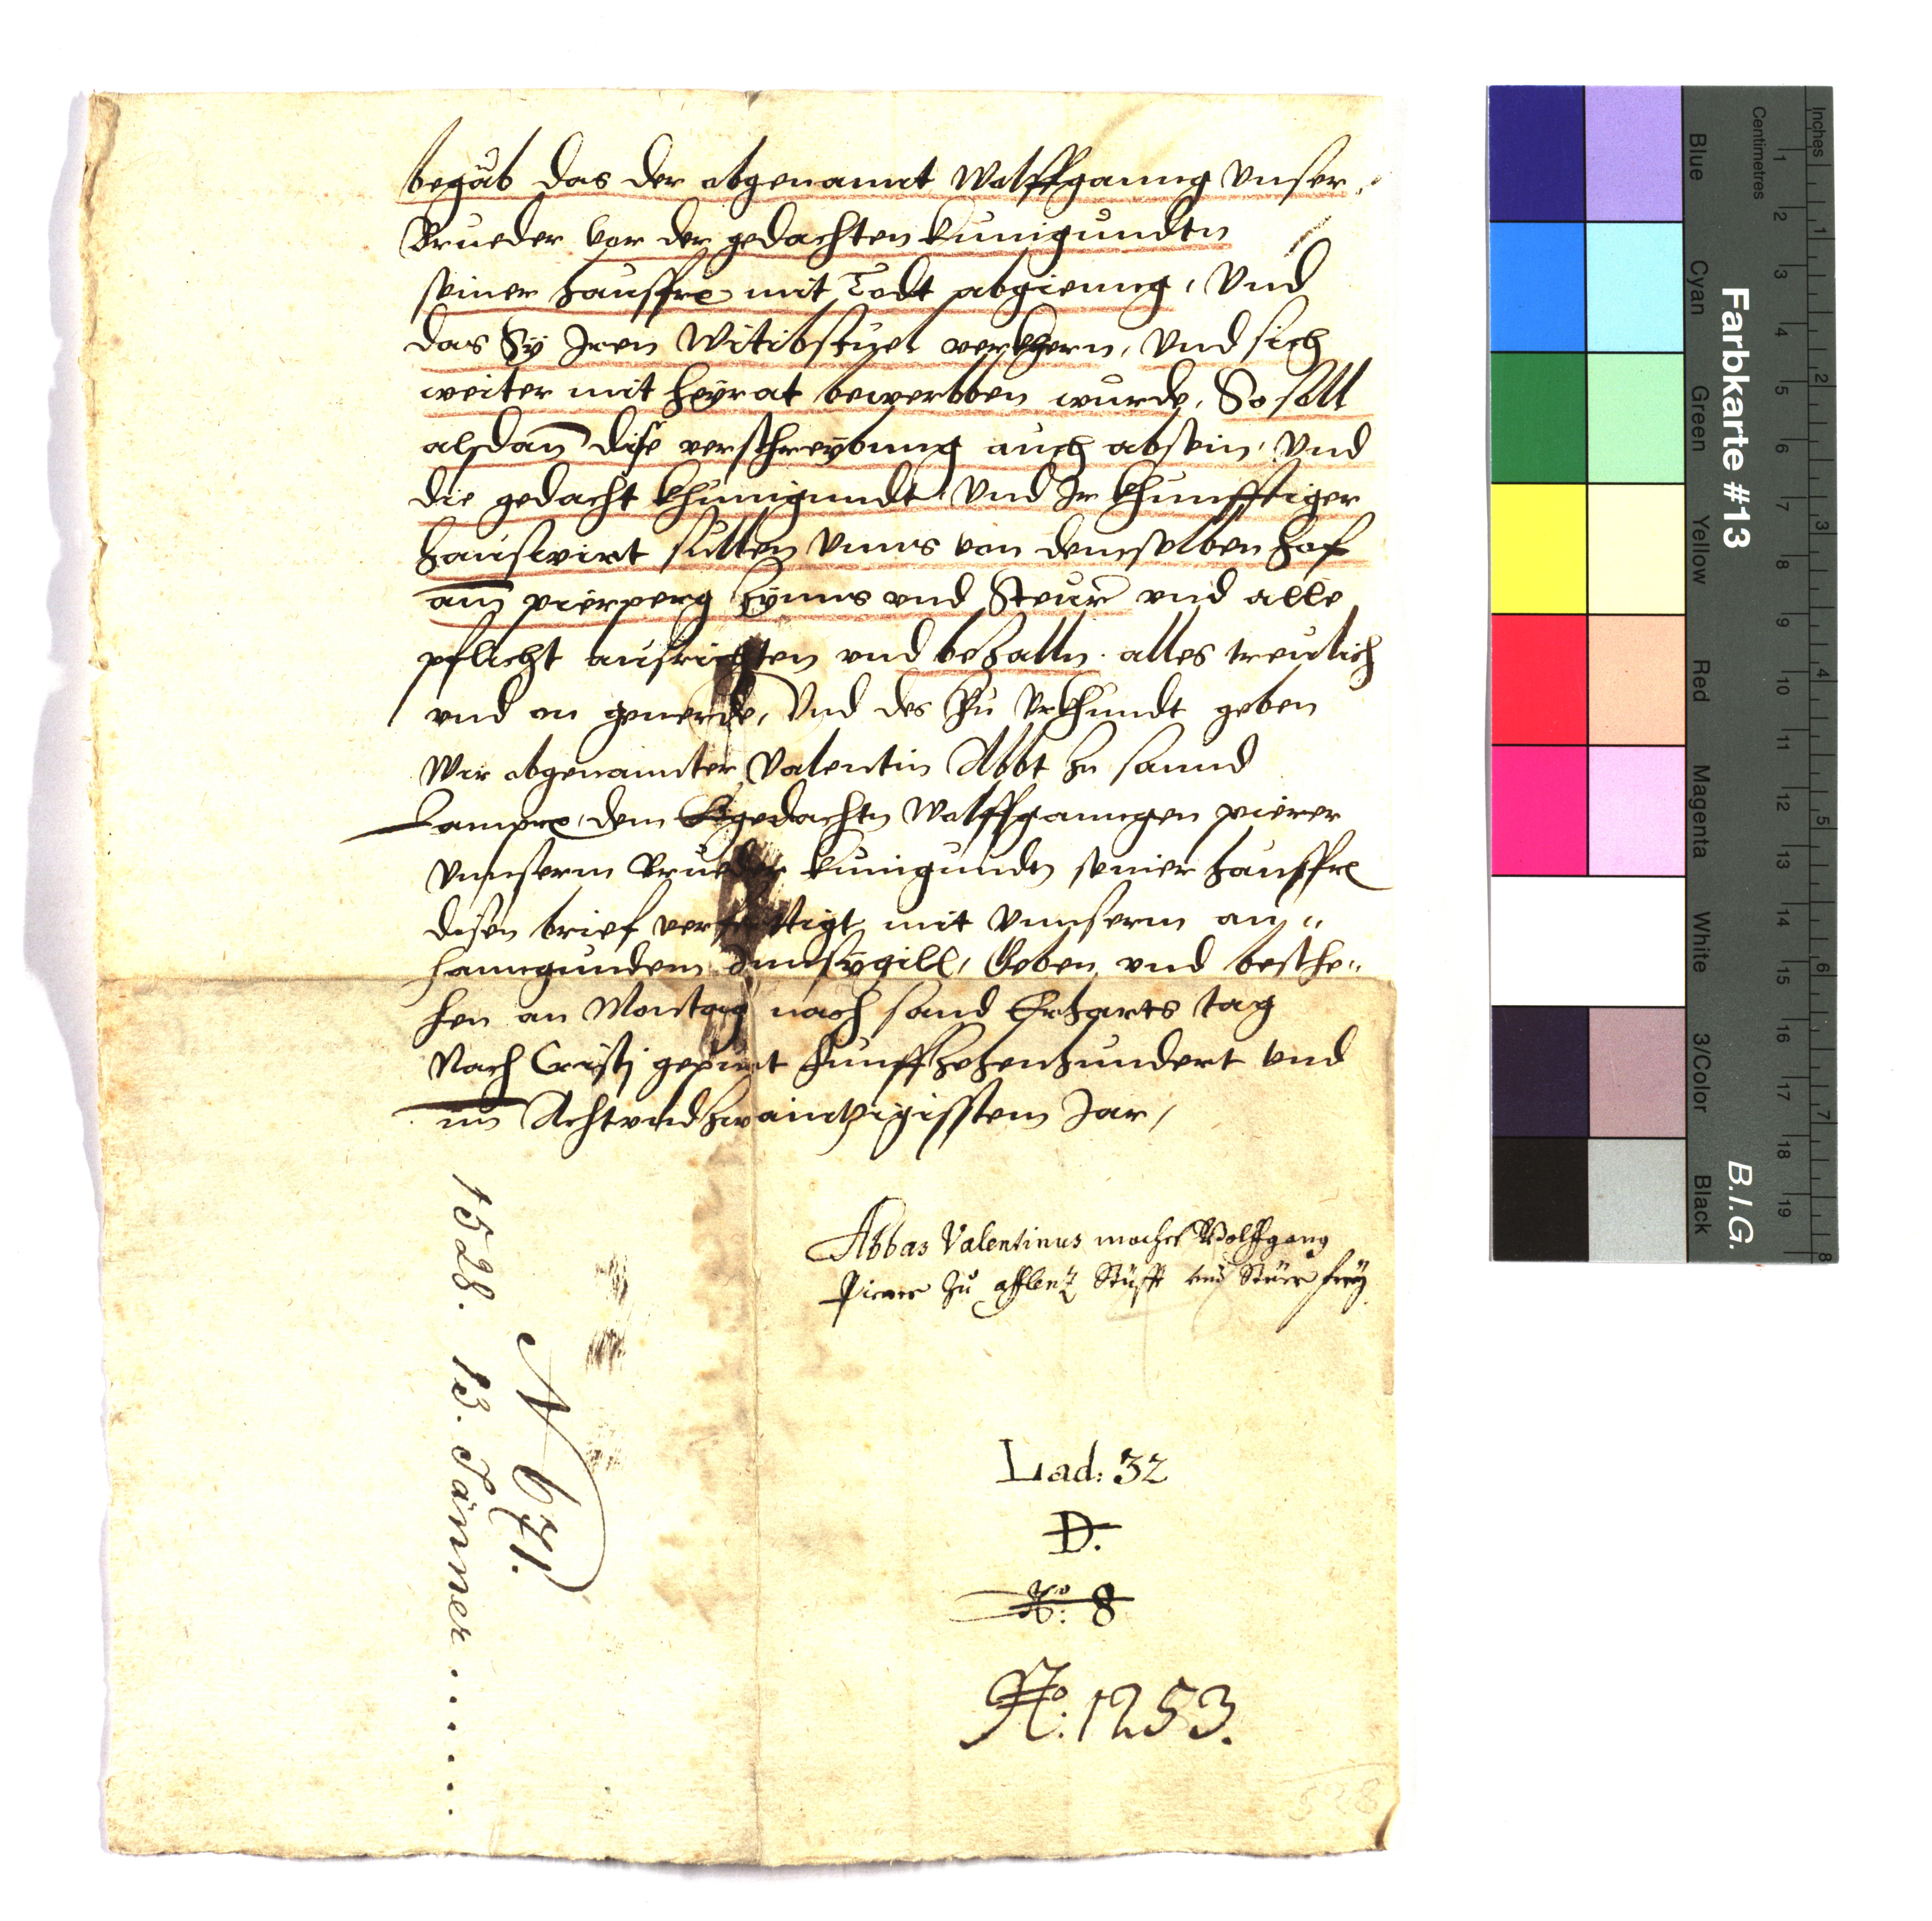 begäb das der obgenannt Wolffganng unser
Brueder vor der gedachten Kunigundtn
seiner hausfre mit Todt abgienng, Und
das Sy Iren Witibstuel verkhern, Und sich
weiter mit heyrat bewerbben wurde, So soll
alsdan dise verschreybung auch absein, Und
die gedacht Khunigundt Und Ir khunfftiger
hauswirt sullen Unns von demselben hof
am pierperg Zynns und Steur und alle
pflicht ausrichten und bezalln. alles treulich
und on geuerde, Und des Zu Urkhundt geben
Wir obgenannter Valentin Abbt zu sannd
Lamprr, dem gedachtn Wolffganngen pierer
Unnserm Brueder Kunigundn seiner hausfre
disen brief verfertigt mit Unnserm an„
hanngundem Innsygill, Geben und besche„
hen an Montag nach sand Erharts tag
Nach Cristi gepurt Funffzehenhundert Und
im Achtundzwaintzigisstem Jar,
Abbas Valentinus machet Wolffgang
Pierer Zu afflentz Stüfft und Steur frey.
Lad: 32
D.
No: 8
No: 1253.
N 671.
1528. 13. Jänner . . . . . .
528
Farbkarte #13
B.I.G.
Blue
Cyan
Green
Yellow
Red
Magenta
White
3/Color
Black
Centimetres
1 2 3 4 5 6 7 8 9 10 11 12 13 14 15 16 17 18 19
Inches
1 2 3 4 5 6 7 8